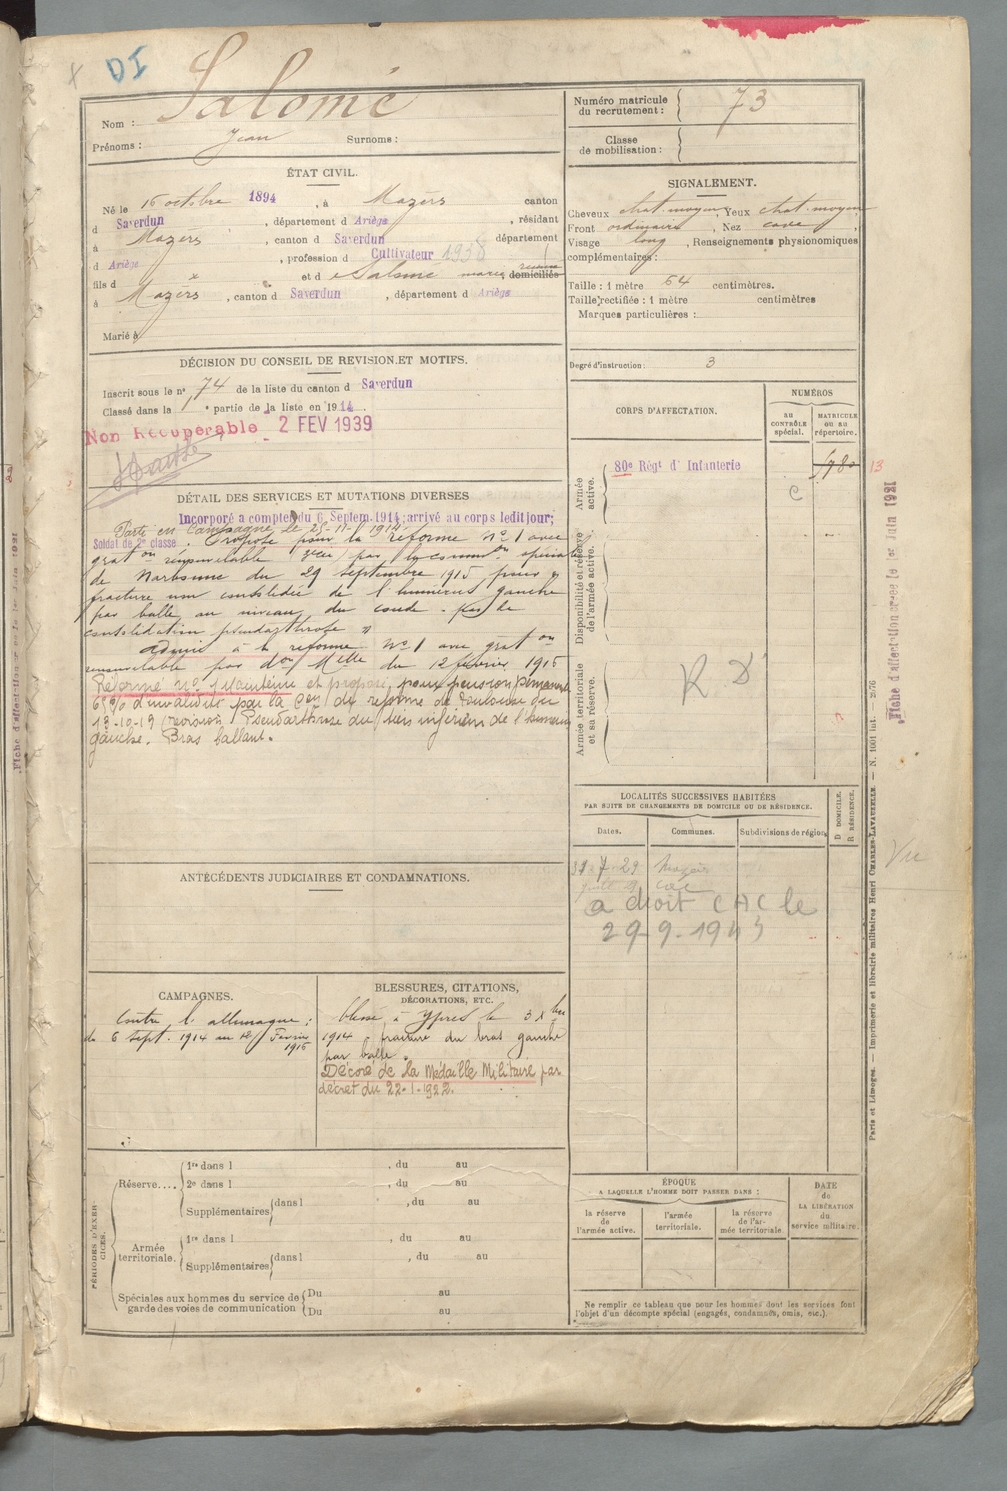 X DI
Nom : Salomé
Prénoms : Jean Surnoms :
Numéro matricule du recrutement : 73
Classe de mobilisation :
ÉTAT CIVIL.
Né le 16 octobre 1894, à Mazères canton
d Saverdun, département d Ariège, résidant
à Mazères, canton d Saverdun département
d Ariège, profession d Cultivateur 1938
fils d x et d e Salomé marie domiciliés
à Mazères, canton d Saverdun, département d Ariège
Marié à
SIGNALEMENT.
Cheveux chat. moyen, Yeux chat. moyen
Front ordinaire, Nez cave,
Visage long, Renseignements physionomiques
complémentaires :
Taille : 1 mètre 64 centimètres.
Taille rectifiée : 1 mètre centimètres
Marques particulières :
Degré d'instruction : 3
DÉCISION DU CONSEIL DE REVISION ET MOTIFS.
Inscrit sous le n° 74 de la liste du canton d Saverdun
Classé dans la 1e partie de la liste en 1914.
Non Récupérable - 2 FEV 1939
DÉTAIL DES SERVICES ET MUTATIONS DIVERSES
Incorporé a compter du 6 Septem. 1914; arrivé au corps ledit jour;
Soldat de 2e classe. Parti en Campagne le 25-11-1914
Proposé pour la réforme n° 1 avec
graton renouvelable par la common spéciale
de Narbonne du 29 septembre 1915 pour «
fracture non consolidée de l'humérus gauche
par balle au niveau du coude. Pas de
consolidation pseudarthrose »
admis à la réforme N° 1 avec graton
renouvelable par don Melle du 12 février 1916
Réformé n° 1 Maintenu et proposé pour pension permanente
65% d'invalidité par la Con de réforme de Toulouse du
13-10-19 (revision) Pseudarthrose du tiers inférieur de l'humérus
gauche. Bras ballant.
CORPS D'AFFECTATION.
NUMÉROS
au CONTRÔLE spécial.
MATRICULE ou au répertoire.
Armée active.
80e Régt d' Infanterie
13
c
Disponibilité et réserve de l'armée active.
Armée territoriale et sa réserve.
R. D
LOCALITÉS SUCCESSIVES HABITÉES
PAR SUITE DE CHANGEMENTS DE DOMICILE OU DE RÉSIDENCE.
Dates.
Communes.
Subdivisions de région.
D DOMICILE.
R RÉSIDENCE.
a droit CAC le
29-9-1943
ANTÉCÉDENTS JUDICIAIRES ET CONDAMNATIONS.
CAMPAGNES.
Contre l'allemagne :
du 6 sept. 1914 au 12 Février
1916
BLESSURES, CITATIONS,
DÉCORATIONS, ETC.
blessé à Ypres le 3 Xbre
1914 fracture du bras gauche
par balle.
Décoré de la Médaille Militaire par
décret du 22-1-1922.
PÉRIODES D'EXERCICES.
Réserve....
1re dans l , du au
2e dans l , du au
Supplémentaires dans l , du au
Armée territoriale.
1re dans l , du au
Supplémentaires dans l , du au
Spéciales aux hommes du service de garde des voies de communication
Du au
Du au
ÉPOQUE
A LAQUELLE L'HOMME DOIT PASSER DANS :
la réserve de l'armée active.
l'armée territoriale.
la réserve de l'armée territoriale.
DATE
de
LA LIBÉRATION
du
service militaire.
Ne remplir ce tableau que pour les hommes dont les services font
l'objet d'un décompte spécial (engagés, condamnés, omis, etc.).
Paris et Limoges. — Imprimerie et librairie militaires Henri CHARLES-LAVAUZELLE. — N. 1001 int. — 2676
Fiche d'affectation créée le 1er Juin 1921
Vu